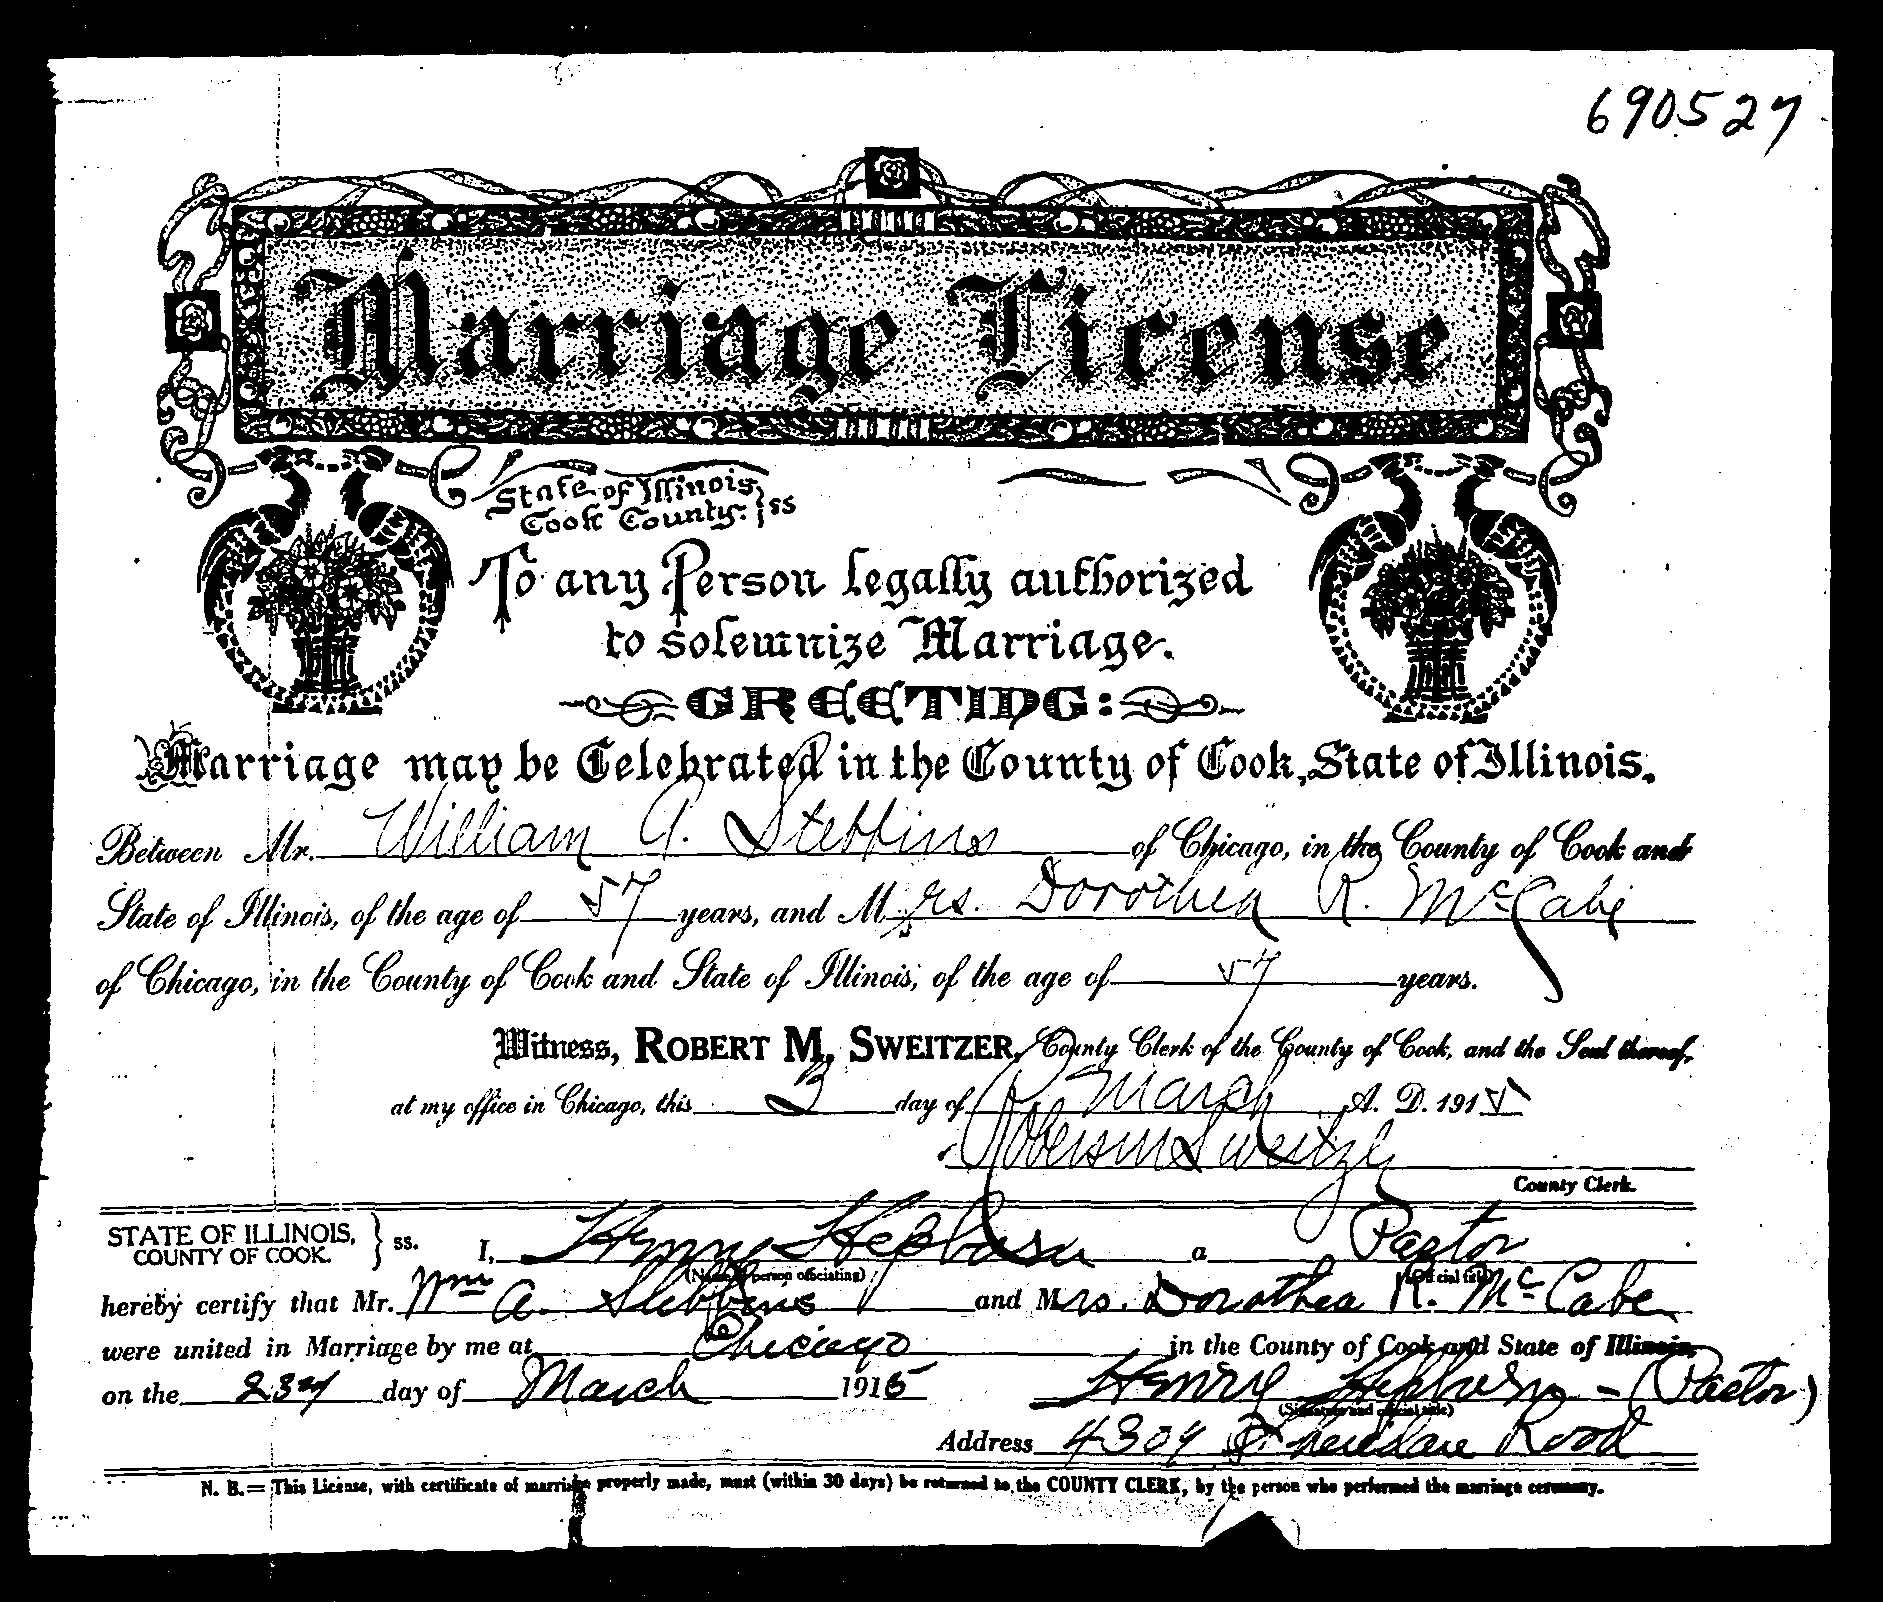 690527
Marriage License
State of Illinois, } ss
Cook County.
To any Person legally authorized
to solemnize Marriage.
GREETING:
Marriage may be Celebrated in the County of Cook, State of Illinois.
Between Mr. William A. Stebbins of Chicago, in the County of Cook and
State of Illinois, of the age of 57 years, and Mrs. Dorothea R. McCabe
of Chicago, in the County of Cook and State of Illinois, of the age of 57 years.
Witness, ROBERT M. SWEITZER, County Clerk of the County of Cook, and the Seal thereof,
at my office in Chicago, this 3 day of March A. D. 1915
Robert M Sweitzer
County Clerk.
STATE OF ILLINOIS, } ss. I, Henry Hepburn a Pastor
COUNTY OF COOK.
(Name of person officiating) (Official title)
hereby certify that Mr. Wm A. Stebbins and Mrs. Dorothea R. McCabe
were united in Marriage by me at Chicago in the County of Cook and State of Illinois,
on the 23rd day of March 1915 Henry Hepburn - (Pastor)
(Signature and official title)
Address 4304 Sheridan Road
N. B.= This License, with certificate of marriage properly made, must (within 30 days) be returned to the COUNTY CLERK, by the person who performed the marriage ceremony.